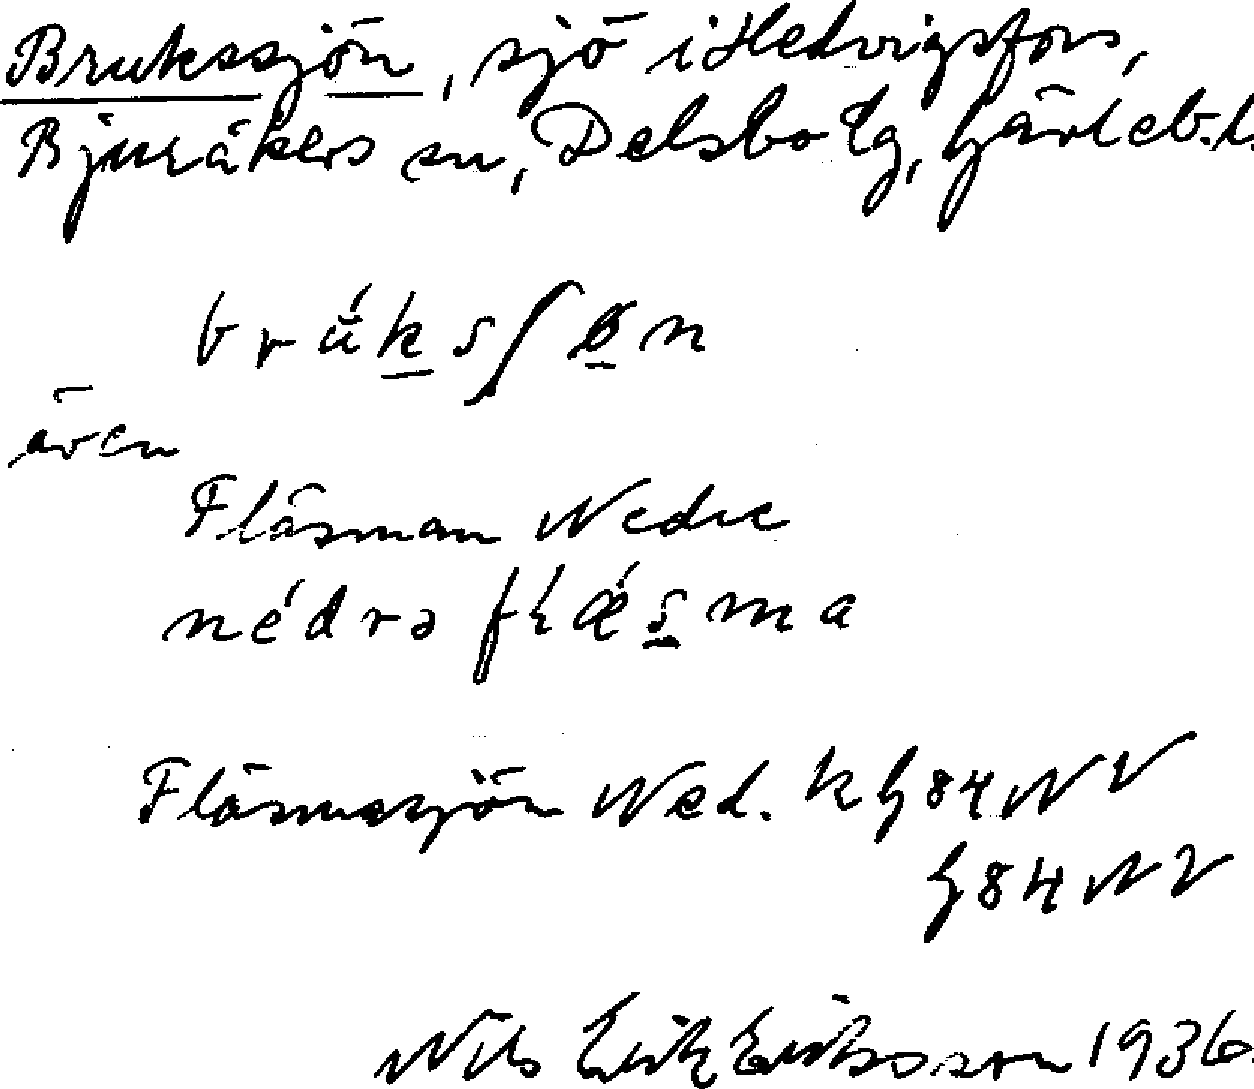 Brukssjön, sjö i Hedvigsfors,
Bjuråkers sn, Delsbo tg, Gävleb. l.
brúksʃøn
även
Flåsman Nedre
nédrə flǽsma
Flåsmasjön Ned. k G84NV
G84NV
Nils Erik Eriksson 1936.